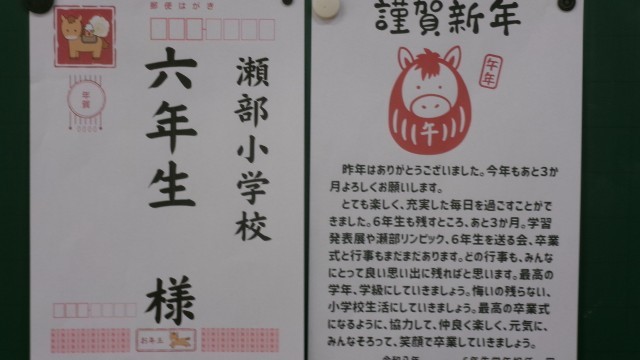 郵便はがき
年賀
瀬部小学校
六年生 様
お年玉
謹賀新年
午年
午
昨年はありがとうございました。今年もあと3か
月よろしくお願いします。
とても楽しく、充実した毎日を過ごすことがで
きました。6年生も残すところ、あと3か月。学習
発表展や瀬部リンピック、6年生を送る会、卒業
式と行事もまだまだあります。どの行事も、みんな
にとって良い思い出に残ればと思います。最高の
学年、学級にしていきましょう。悔いの残らない、
小学校生活にしていきましょう。最高の卒業式
になるように、協力して、仲良く楽しく、元気に、
みんなそろって、笑顔で卒業していきましょう。